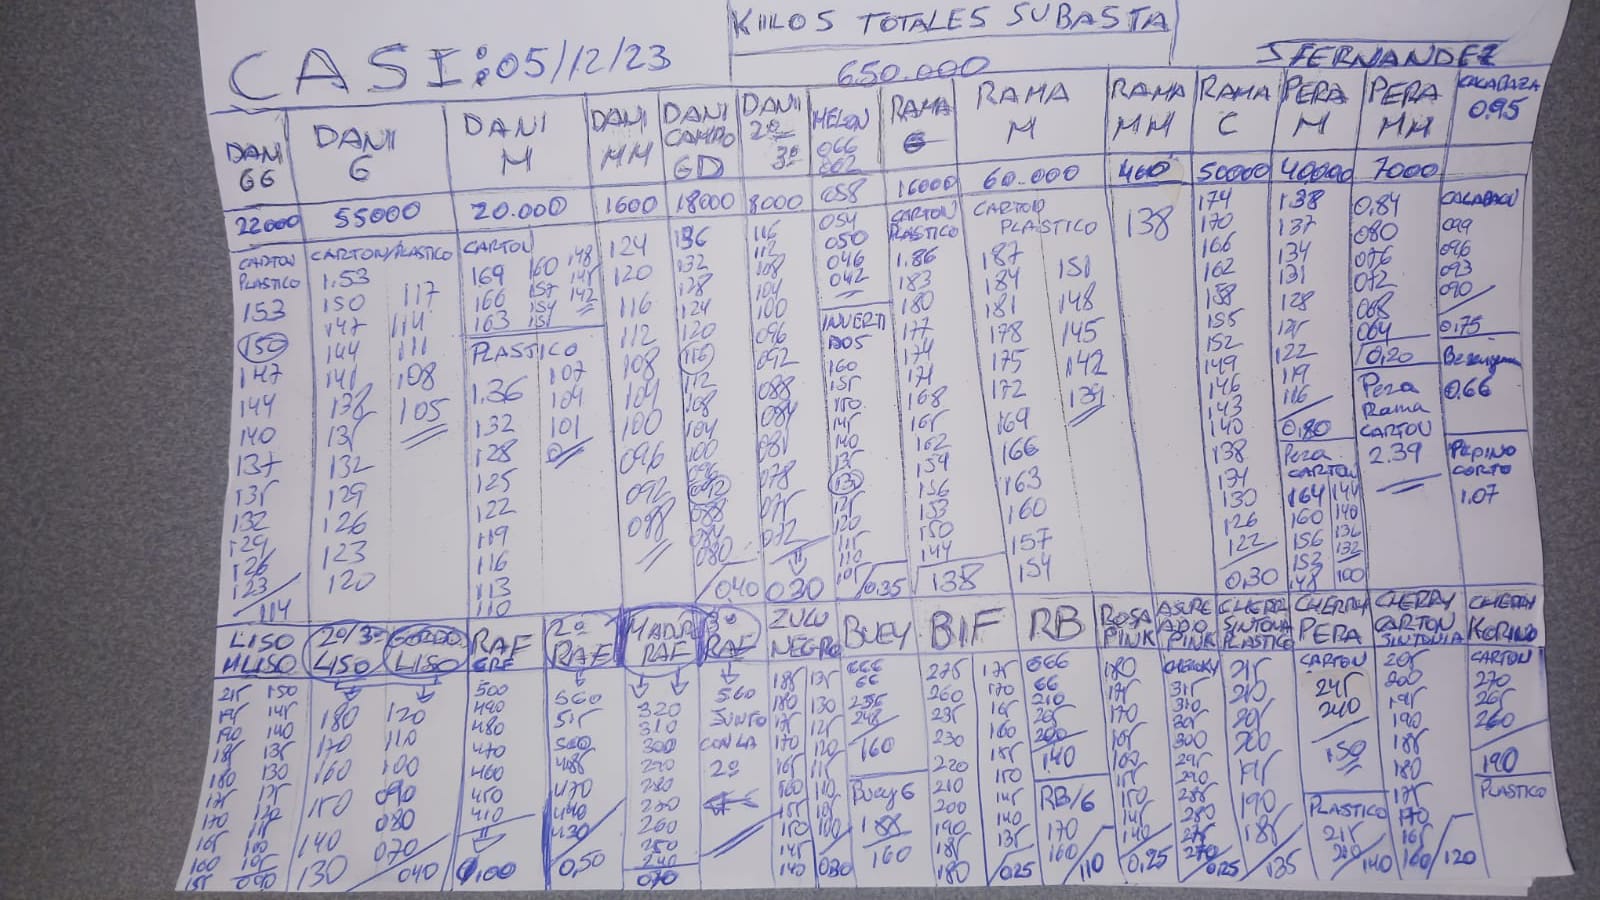 KIILOS TOTALES SUBASTA
CASI: 05/12/23
650.000
JFERNANDEZ
DANI GG
22000
CARTON
PLASTICO
153
150
147
144
140
137
135
132
129
126
123
114
DANI
G
55000
CARTON/PLASTICO
1.53
150
147
144
141
138
135
132
129
126
123
120
117
114
111
108
105
DANI
M
20.000
CARTON
169 160 148
166 157 145
163 154 142
151
PLASTICO
1.36 107
132 104
128 101
125
122
119
116
113
110
DANI
MM
1600
124
120
116
112
108
104
100
096
092
088
DANI
CAMPO
GD
18000
136
132
128
124
120
116
112
108
104
100
096
092
088
084
080
0.40
DANI
2º
3º
8000
116
112
108
104
100
096
092
088
084
081
078
075
072
030
MELON
066
062
058
054
050
046
042
INVERTI
DOS
160
155
150
145
140
135
131
125
120
115
110
105
0.35
RAMA
G
16000
CARTON
PLASTICO
1.86
183
180
177
174
171
168
165
162
159
156
153
150
144
138
RAMA
M
60.000
CARTON
PLASTICO
187 151
184 148
181 145
178 142
175 139
172
169
166
163
160
157
154
RAMA
MM
460
138
RAMA
C
50000
174
170
166
162
158
155
152
149
146
143
140
138
134
130
126
122
0,30
PERA
M
40000
1.38
137
134
131
128
125
122
119
116
0,80
Pera
CARTON
164 144
160 140
156 136
153 132
148 100
PERA
MM
7000
0.84
080
076
072
068
064
0,20
Pera
Rama
CARTON
2.39
CALABAZA
0.95
CALABACIN
099
096
093
090
0.75
Berenjena
0.66
PEPINO
CORTO
1.07
LISO
MLISO
215 150
195 145
190 140
185 135
180 130
175 125
170 122
165 115
160 105
155 090
2º/3º
LISO
180
170
160
150
140
130
GORDO
LISO
120
110
100
090
080
070
040
RAF
GRF
500
490
480
470
460
450
410
1.00
2º
RAF
560
515
500
485
470
440
430
0,50
MADU
RAF
320
310
300
290
280
270
260
250
240
070
3º
RAF
560
JUNTO
CON LA
2º
ZULU
NEGRO
185 135
180 130
175 125
170 120
165 115
160 110
155 105
150 100
145
140 030
BUEY
666
66
255
248
160
Buey G
188
160
BIF
275 175
260 170
235 165
230 160
220 155
210 150
200 145
190 140
185 135
180 025
RB
666
66
210
205
200
140
RB/G
170
160
110
ROSA
PINK
180
175
170
165
160
155
150
145
140
0,25
ASURE
ADO
PINK
CHERRY
315
310
305
300
295
290
285
280
275
270
0,25
CHERRY
SINTONIA
PLASTICO
215
210
205
200
195
190
185
135
CHERRY
PERA
CARTON
245
240
150
PLASTICO
215
200
140
CHERRY
CARTON
SINTONIA
205
200
195
190
185
180
175
170
165
160
120
CHERRY
KORINO
CARTON
270
265
260
190
PLASTICO